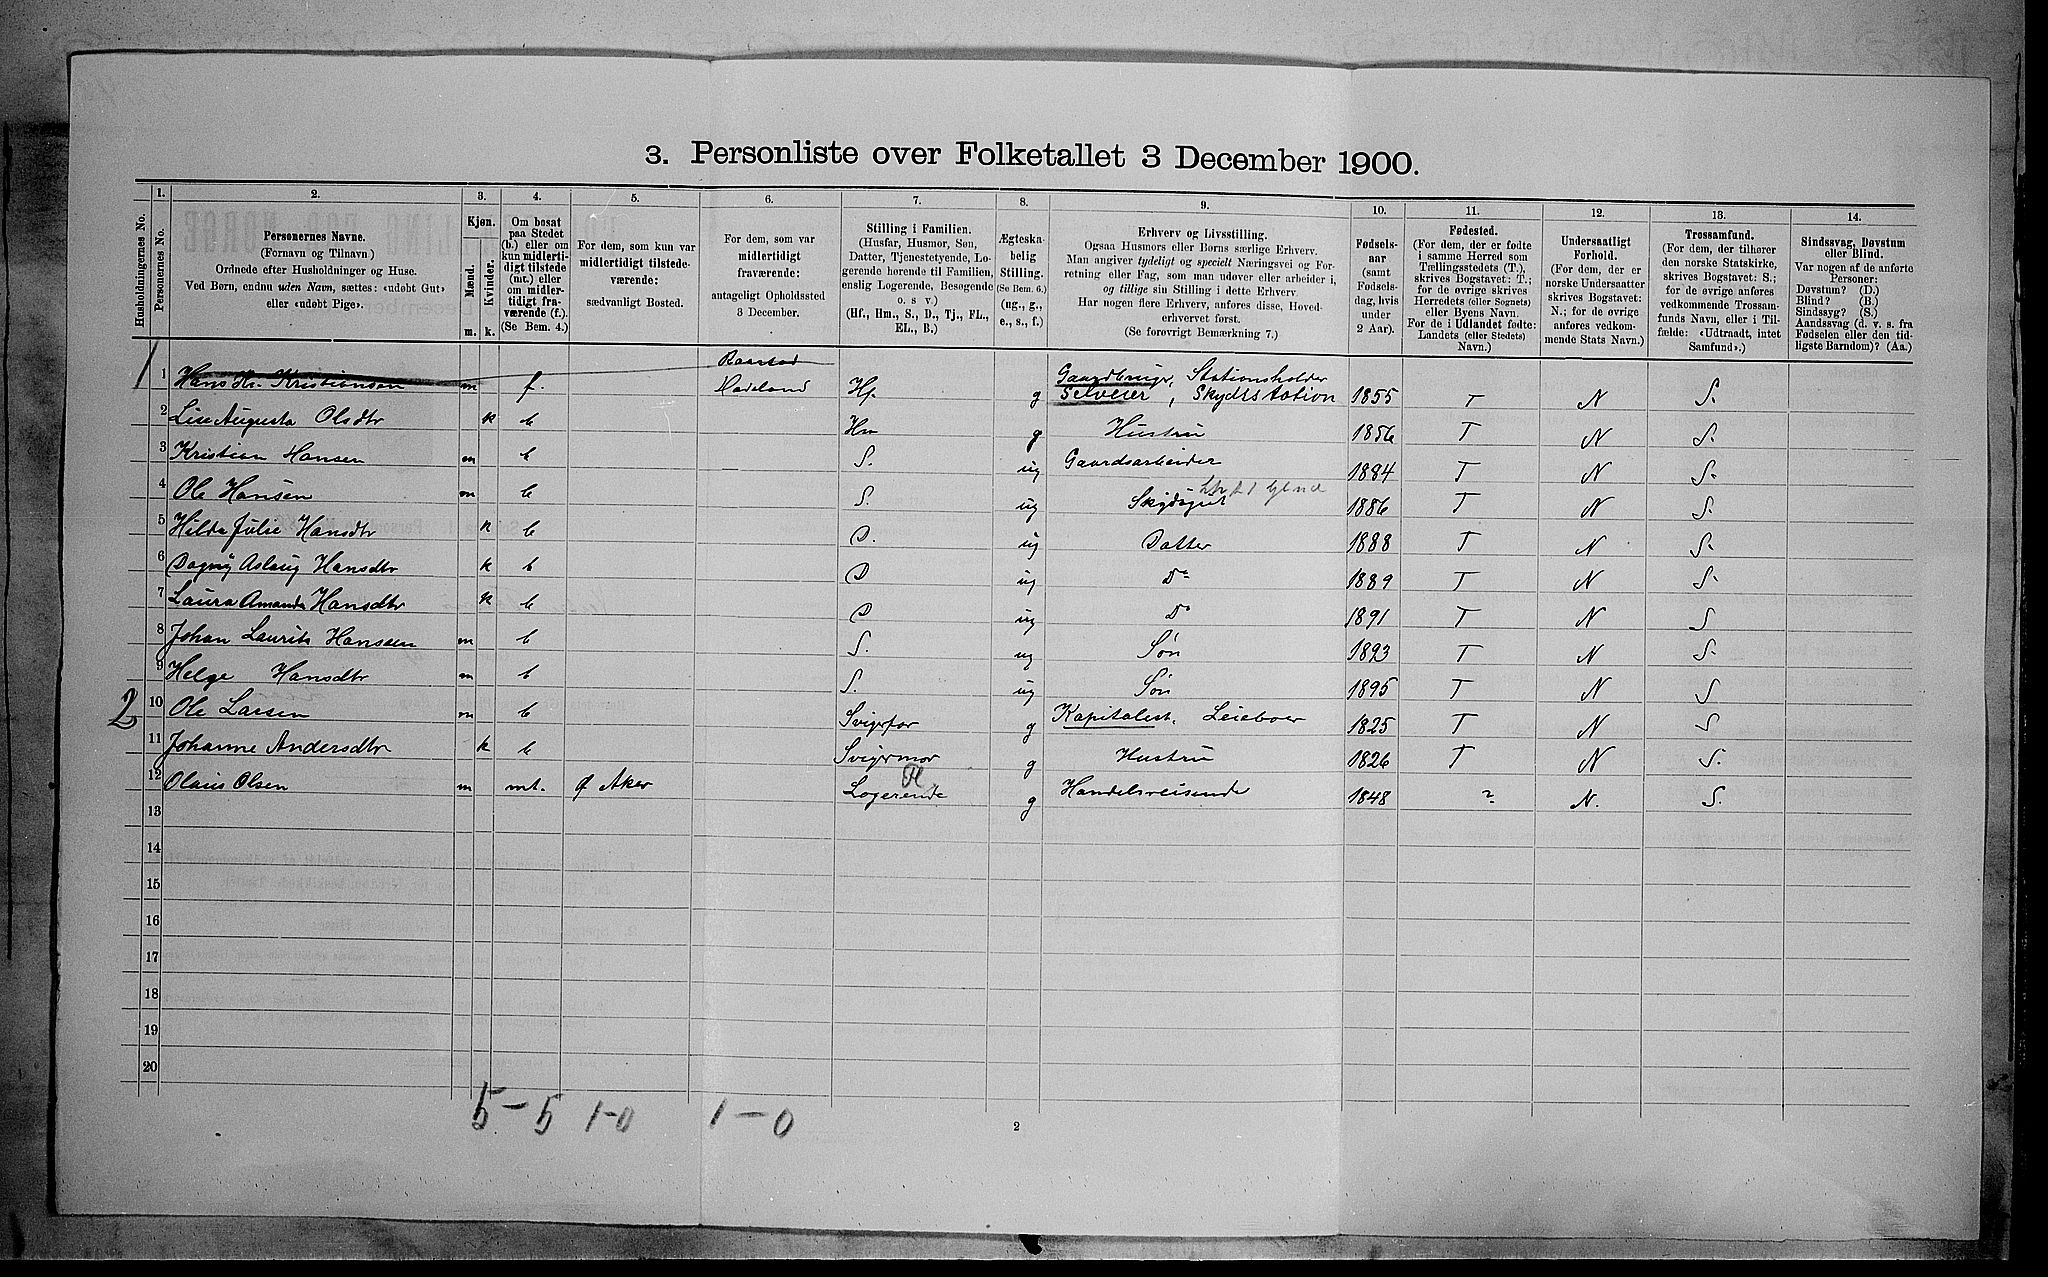 3. Personliste over Folketallet 3 December 1900.
1. 2. 3. 4. 5. 6. 7. 8. 9. 10. 11. 12. 13. 14.
Husholdningernes No.
Personernes No.
Personernes Navne.
(Fornavn og Tilnavn)
Ordnede efter Husholdninger og Huse.
Ved Børn, endnu uden Navn, sættes: «udøbt Gut»
eller «udøbt Pige».
Kjøn.
Mænd. Kvinder.
m. k.
Om bosat
paa Stedet
(b.) eller om
kun midlerti-
digt tilstede
(mt.) eller
om midler-
tidigt fra-
værende (f.).
(Se Bem. 4.)
For dem, som kun var
midlertidigt tilstede-
værende:
sædvanligt Bosted.
For dem, som var
midlertidigt
fraværende:
antageligt Opholdssted
3 December.
Stilling i Familien.
(Husfar, Husmor, Søn,
Datter, Tjenestetyende, Lo-
gerende hørende til Familien,
enslig Logerende, Besøgende
o. s. v.)
(Hf., Hm., S., D., Tj., FL.,
EL., B.)
Ægteska-
belig
Stilling.
(Se Bem. 6.)
(ug., g.,
e., s., f.)
Erhverv og Livsstilling.
Ogsaa Husmors eller Børns særlige Erhverv.
Man angiver tydeligt og specielt Næringsvei og For-
retning eller Fag, som man udøver eller arbeider i,
og tillige sin Stilling i dette Erhverv.
Har nogen flere Erhverv, anføres disse, Hoved-
erhvervet først.
(Se forøvrigt Bemærkning 7.)
Fødsels-
aar
(samt
Fødsels-
dag, hvis
under
2 Aar).
Fødested.
(For dem, der er fødte
i samme Herred som
Tællingsstedets (T.),
skrives Bogstavet: T.;
for de øvrige skrives
Herredets (eller Sognets)
eller Byens Navn.
For de i Udlandet fødte:
Landets (eller Stedets)
Navn.)
Undersaatligt
Forhold.
(For dem, der er
norske Undersaatter
skrives Bogstavet:
N.; for de øvrige
anføres vedkom-
mende Stats Navn.)
Trossamfund.
(For dem, der tilhører
den norske Statskirke,
skrives Bogstavet: S.;
for de øvrige anføres
vedkommende Trossam-
funds Navn, eller i Til-
fælde: «Udtraadt, intet
Samfund».)
Sindssvag, Døvstum
eller Blind.
Var nogen af de anførte
Personer:
Døvstum? (D.)
Blind? (B.)
Sindssyg? (S.)
Aandssvag (d. v. s. fra
Fødselen eller den tid-
ligste Barndom)? (Aa.)
1 1 Hans Kr. Kristiansen m f. Raastad Hadeland Hf. g Gaardbruger, Stationsholder
Selveier, Skydsstation 1855 T N S.
2 Lise Augusta Olsdtr k b Hm g Hustru 1856 T N S.
3 Kristian Hansen m b S. ug Gaardsarbeider 1884 T N S.
4 Ole Hansen m b S. ug Skydsgut 1886 T N S.
5 Hilda Julie Hansdtr k b D. ug Datter 1888 T N S.
6 Dagny Aslaug Hansdtr k b D ug Do 1889 T N S.
7 Laura Amanda Hansdtr k b D ug Do 1891 T N S
8 Johan Laurits Hanssen m b S. ug Søn 1893 T N S.
9 Helge Hansdtr m b S. ug Søn 1895 T N S
2 10 Ole Larsen m b Svigerfar g Kapitalest. Leieboer 1825 T N S
11 Johanne Andersdtr k b Svigermor g Hustru 1826 T N S.
12 Olaus Olsen m mt. Ø Aker Logerende g Handelsreisende 1848 ? N. S.
13
14
15
16
17
18
19
20
5-5 1-0 1-0
2